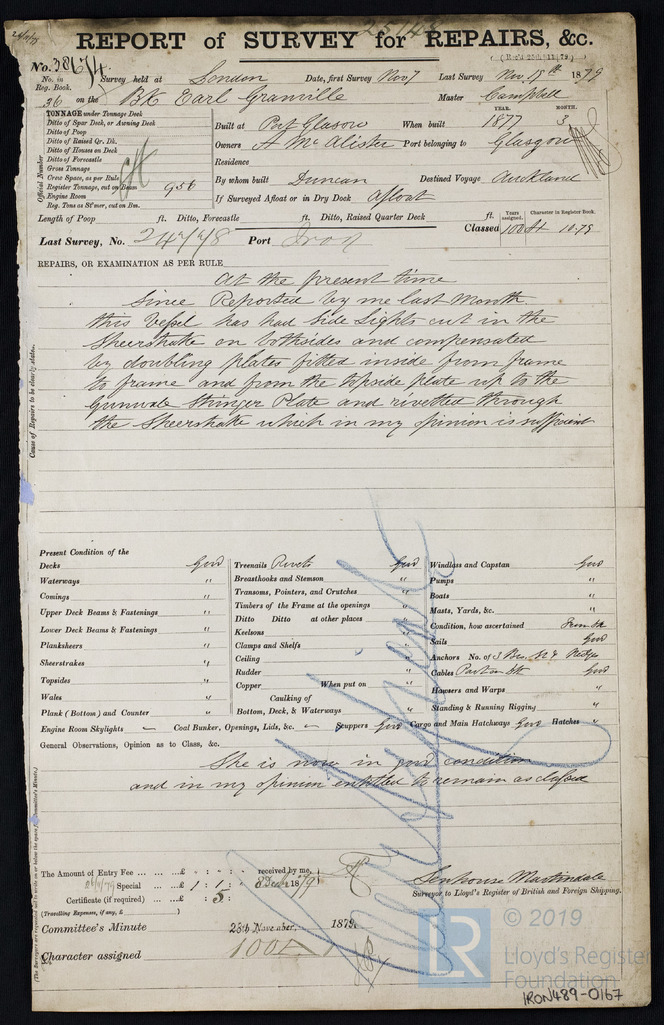 REPORT of SURVEY for REPAIRS, &c.
No. 38674
(Rec'd 25th/11/79)
No. in Reg. Book.
Survey held at London Date, first Survey Nov 7 Last Survey Nov. 15th 1879
36 on the Bk Earl Granville Master Campbell
TONNAGE under Tonnage Deck
Ditto of Spar Deck, or Awning Deck
Ditto of Poop
Ditto of Raised Qr. Dk.
Ditto of Houses on Deck
Ditto of Forecastle
Gross Tonnage
Crew Space, as per Rule
Register Tonnage, out on Beam 956
Engine Room
Reg. Tons as St'mer, cut on Bm.
Official Number
YEAR. MONTH.
Built at Port Glasgow When built 1877 3
Owners A McAlister Port belonging to Glasgow
Residence
By whom built Duncan Destined Voyage Auckland
If Surveyed Afloat or in Dry Dock Afloat
Length of Poop ft. Ditto, Forecastle ft. Ditto, Raised Quarter Deck ft.
Years assigned. Character in Register Book.
Classed 100 A 10.79
Last Survey, No. Port Iron
REPAIRS, OR EXAMINATION AS PER RULE
At the present time
Since Reported by me last Month
this Vessel has had Side Lights cut in the
Sheerstrake on bothsides and compensated
by doubling plates fitted inside from frame
to frame and from the topside plate up to the
Gunwale Stringer Plate and rivetted through
the Sheerstrake which in my opinion is sufficient
Cause of Repairs to be clearly stated.
Present Condition of the
Decks Good
Waterways "
Comings "
Upper Deck Beams & Fastenings "
Lower Deck Beams & Fastenings "
Planksheers "
Sheerstrakes "
Topsides "
Wales "
Plank (Bottom) and Counter "
Treenails Rivets Good
Breasthooks and Stemson "
Transoms, Pointers, and Crutches "
Timbers of the Frame at the openings "
Ditto Ditto at other places "
Keelsons "
Clamps and Shelfs "
Ceiling "
Rudder "
Copper When put on "
Caulking of
Bottom, Deck, & Waterways "
Windlass and Capstan Good
Pumps "
Boats "
Masts, Yards, &c. "
Condition, how ascertained
Sails Good
Anchors No. of 3 Brs.
Cables Good
Howsers and Warps "
Standing & Running Rigging "
Engine Room Skylights — Coal Bunker, Openings, Lids, &c. — Scuppers Good Cargo and Main Hatchways Good Hatches "
General Observations, Opinion as to Class, &c.
She is now in good condition
and in my opinion entitled to remain as classed
The Amount of Entry Fee ... £ : : received by me,
26/11/79 Special ... £ 1 : 1 : 3 Dec 1879
Certificate (if required) ... : 5
(Travelling Expenses, if any, £ )
Senhouse Martindale
Surveyor to Lloyd's Register of British and Foreign Shipping.
Committee's Minute 25th November, 1879.
Character assigned 100A
LR
© 2019
Lloyd's Register
Foundation
IRON489-0167